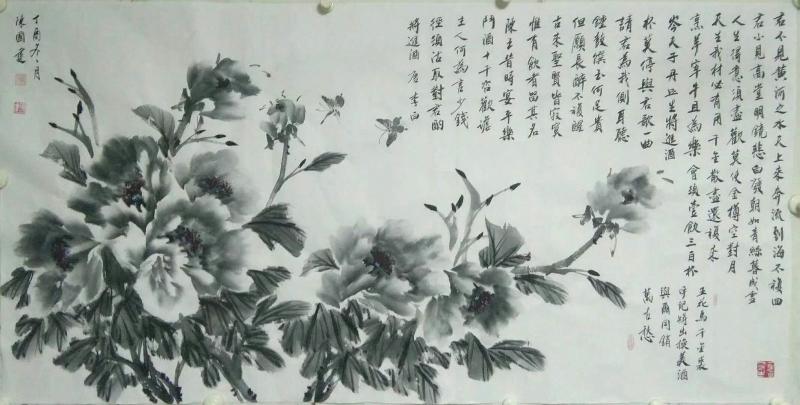 君不見黃河之水天上来奔流到海不復回
君不見高堂明鏡悲白發朝如青絲暮成雪
人生得意須盡歡莫使金樽空對月
天生我材必有用千金散盡還復来
烹羊宰牛且為樂會須壹飲三百杯
岑夫子丹丘生將進酒
杯莫停與君歌一曲
請君為我側耳聽
鐘鼓饌玉何足貴
但願長醉不復醒
古來聖賢皆寂寞
惟有飲者留其名
陳王昔時宴平樂
鬥酒十千恣歡謔
主人何為言少錢
徑須沽取對君酌
將進酒 唐 李白
五花馬千金裘
呼兒將出換美酒
與爾同銷
萬古愁
丁酉冬月
陳國